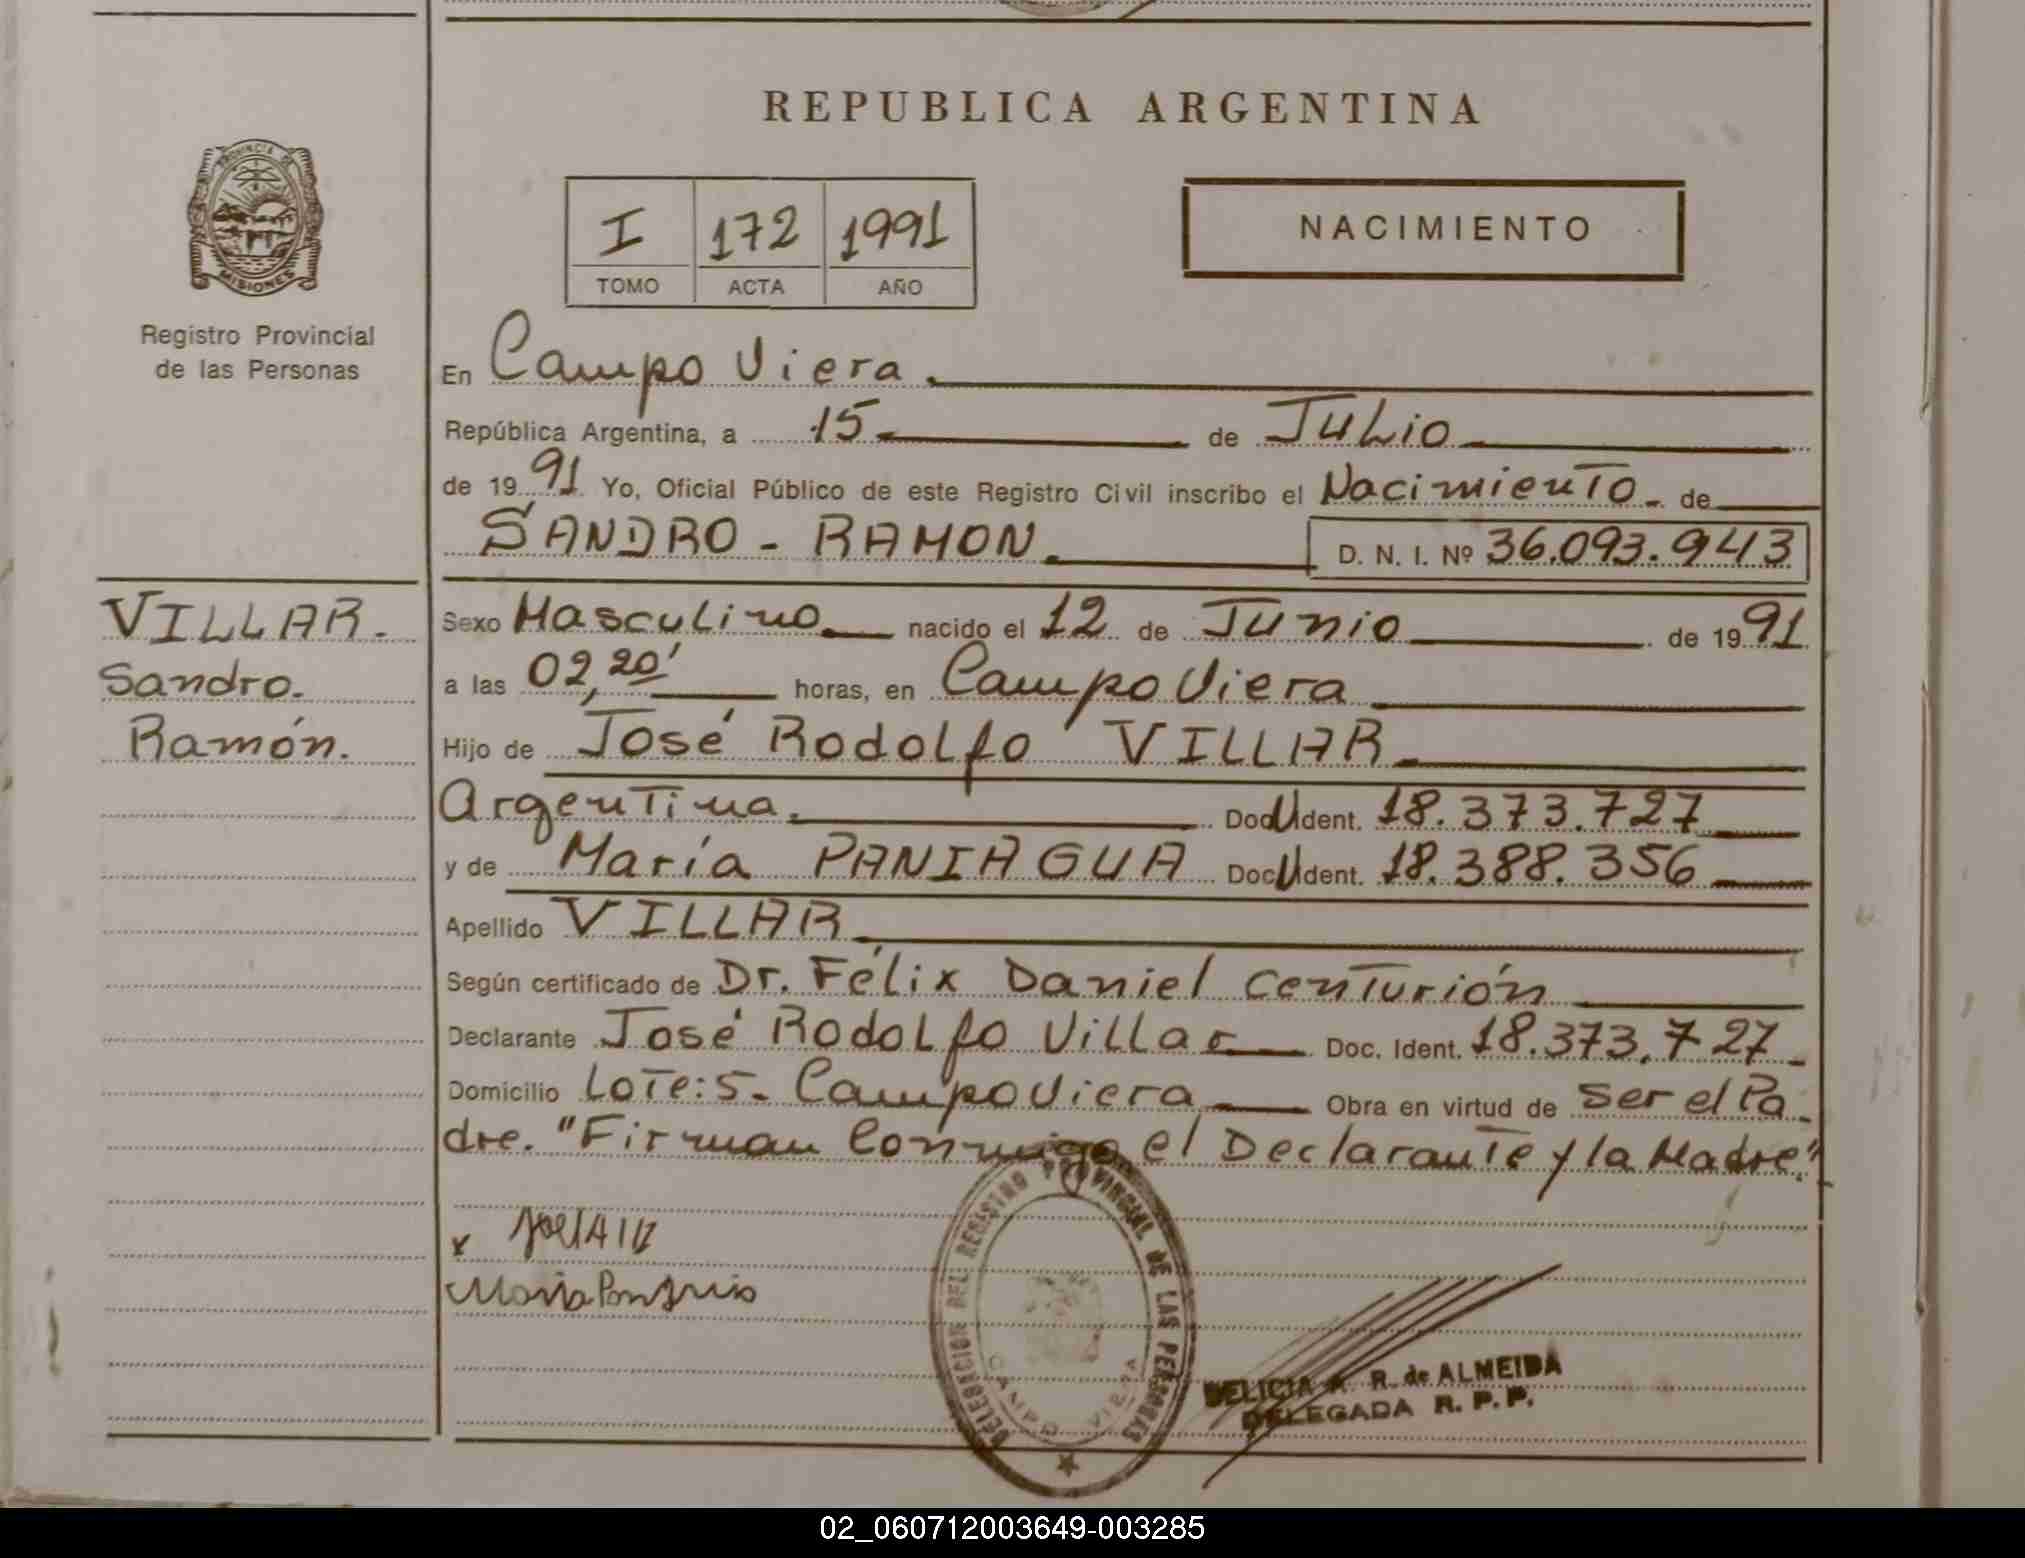 REPUBLICA ARGENTINA
PROVINCIA DE
MISIONES
Registro Provincial
de las Personas
I 172 1991
TOMO ACTA AÑO
NACIMIENTO
En Campo Viera.
República Argentina, a 15 de Julio
de 1991 Yo, Oficial Público de este Registro Civil inscribo el Nacimiento de
SANDRO - RAMON. D. N. I. Nº 36.093.943
VILLAR.
Sandro.
Ramón.
Sexo Masculino nacido el 12 de Junio de 1991.
a las 02,20' horas, en Campo Viera
Hijo de José Rodolfo VILLAR
Argentina. Doc U Ident. 18.373.727
y de María PANIAGUA Doc U Ident. 18.388.356
Apellido VILLAR
Según certificado de Dr. Félix Daniel Centurión
Declarante José Rodolfo Villar Doc. Ident. 18.373.727
Domicilio Lote: 5 - Campo Viera Obra en virtud de ser el Pa-
dre. "Firman Conmigo el Declarante y la Madre."
x
Maria
DELEGACION DEL REGISTRO PROVINCIAL DE LAS PERSONAS
CAMPO VIERA
DELICIA A. R. de ALMEIDA
DELEGADA R. P. P.
02_060712003649-003285